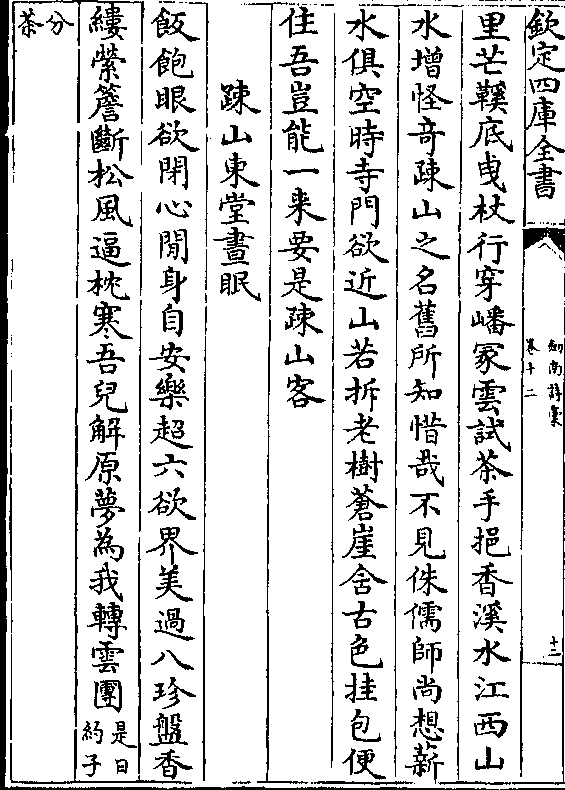 欽定四庫全書
劒南詩藁
卷十二
十二
里芒鞵底曳杖行穿嶓冢雲試茶手挹香溪水江西山
水增怪竒疎山之名舊所知惜哉不見侏儒師尚想薪
水俱空時寺門欲近山若拆老樹蒼崖含古色挂包便
住吾豈能一来要是疎山客
疎山東堂晝眠
飯飽眼欲閉心閒身自安樂超六欲界美過八珍盤香
縷縈簷斷松風逼枕寒吾兒解原夢為我轉雲團是日約子
分茶